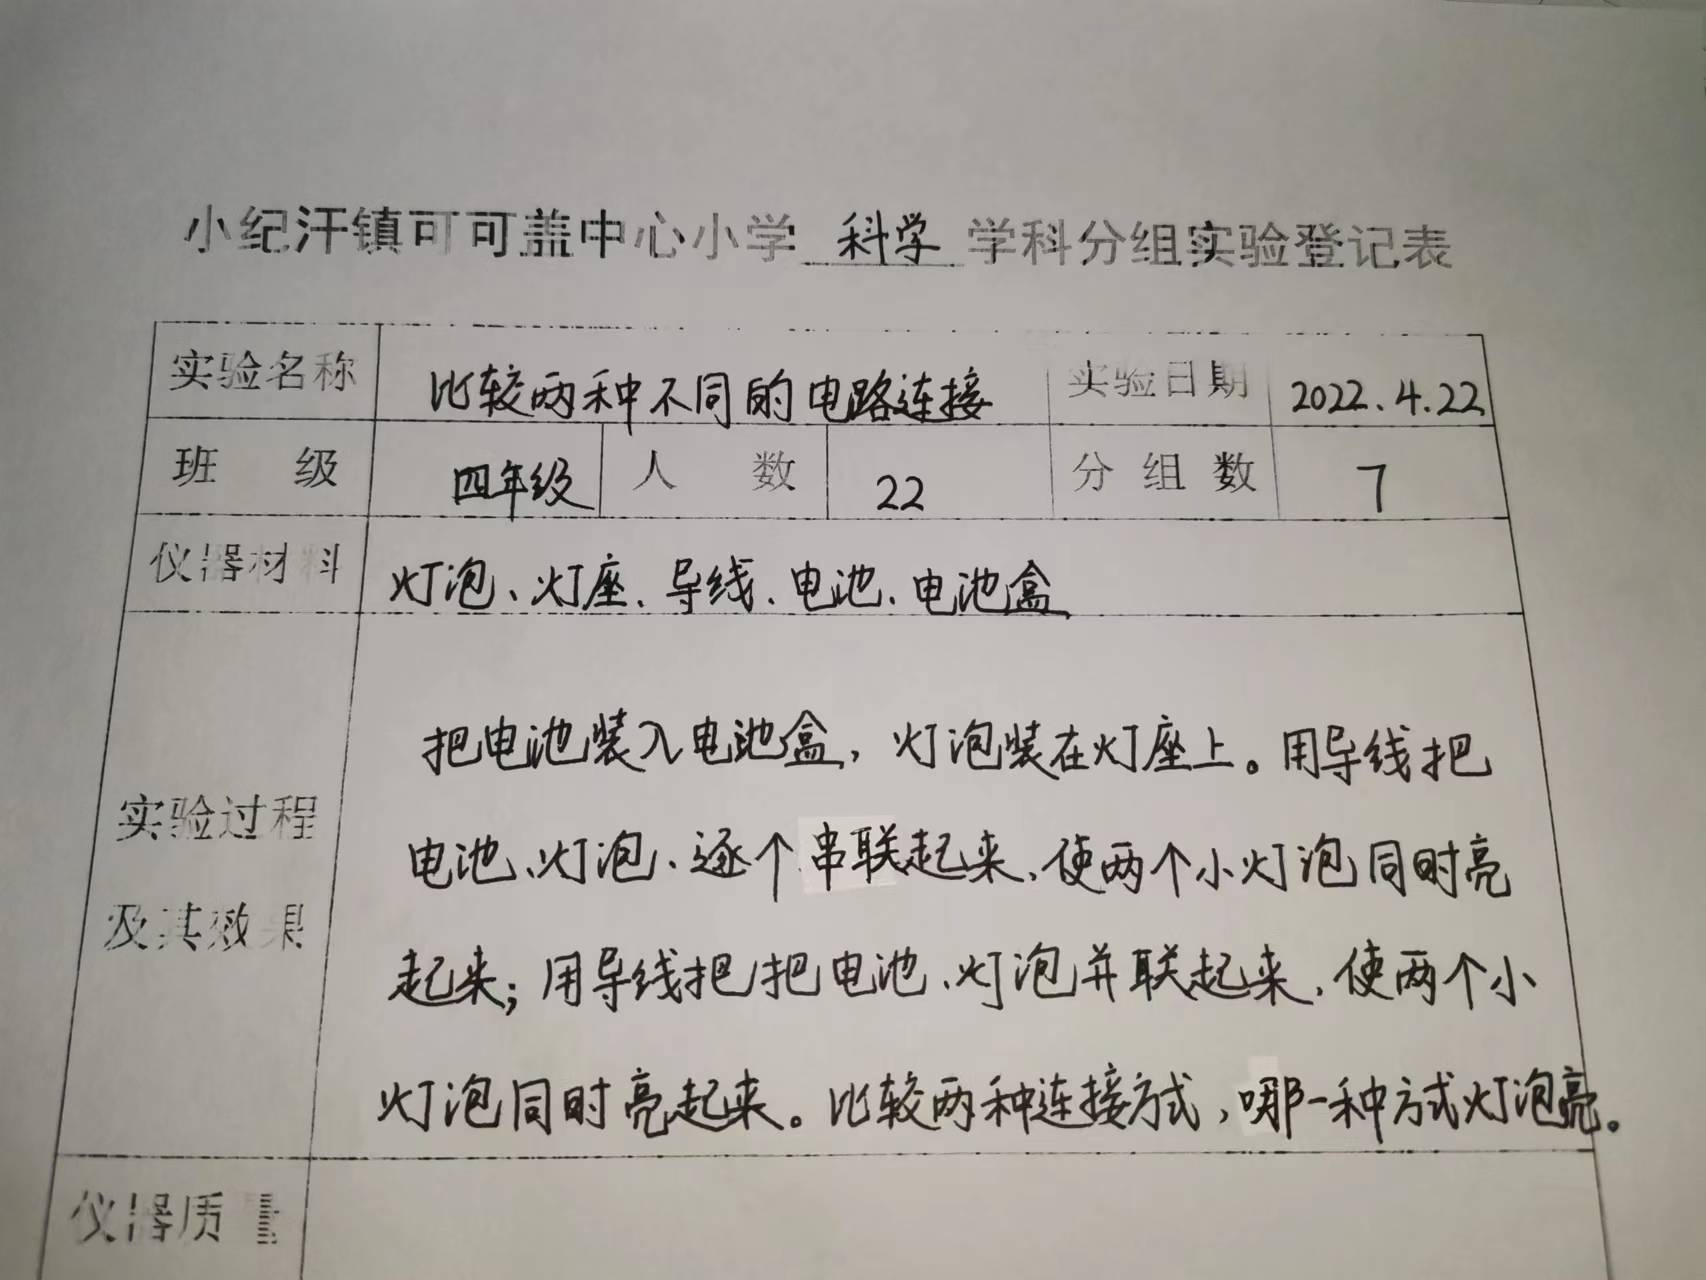 小纪汗镇可可盖中心小学 科学 学科分组实验登记表
实验名称 比较两种不同的电路连接 实验日期 2022.4.22
班级 四年级 人数 22 分组数 7
仪器材料 灯泡、灯座、导线、电池、电池盒
把电池装入电池盒，灯泡装在灯座上。用导线把
实验过程 电池、灯泡、逐个串联起来、使两个小灯泡同时亮
及其效果 起来；用导线把把电池、灯泡并联起来，使两个小
灯泡同时亮起来。比较两种连接方式，哪一种方式灯泡亮。
仪器质量